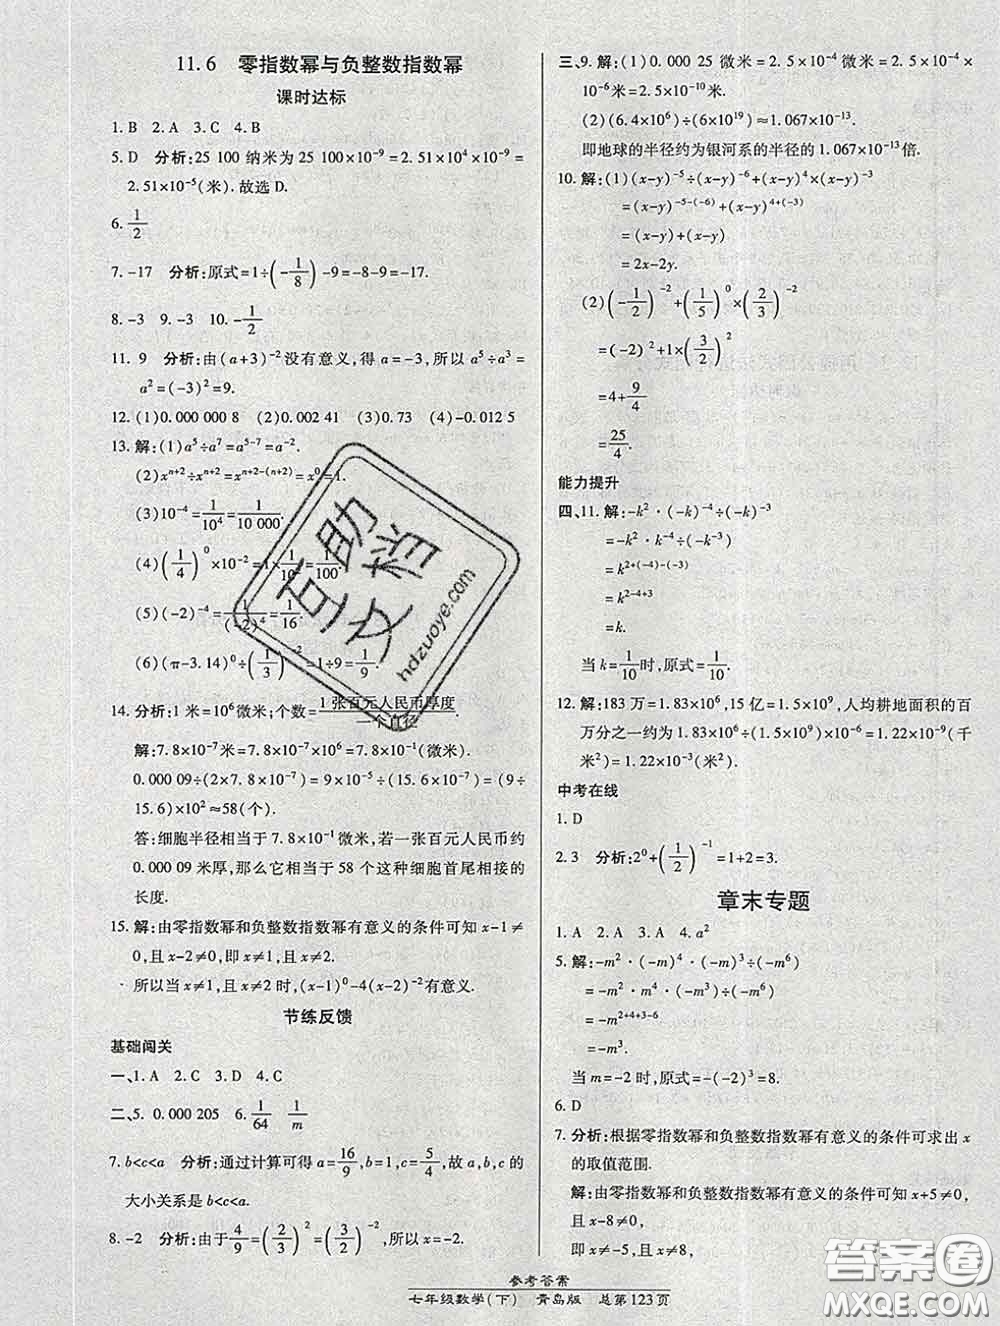 11.6 零指数幂与负整数指数幂
课时达标
1. B 2. A 3. C 4. B
5. D 分析:25 100 纳米为 25 100×10⁻⁹=2.51×10⁴×10⁻⁹=
2.51×10⁻⁵(米).故选 D.
6. 1/2
7. -17 分析:原式=1÷(-1/8)-9=-8-9=-17.
8. -3 9. -3 10. -1/2
11. 9 分析:由(a+3)⁻²没有意义,得 a=-3,所以 a⁵÷a³=
a²=(-3)²=9.
12. (1)0.000 000 8 (2)0.002 41 (3)0.73 (4)-0.012 5
13. 解:(1)a⁵÷a⁷=a⁵⁻⁷=a⁻².
(2)xⁿ⁺²÷xⁿ⁺²=xⁿ⁺²⁻⁽ⁿ⁺²⁾=x⁰=1.
(3)10⁻⁴=1/10⁴=1/10 000.
(4)(1/4)⁰×10⁻²=1×1/10²=1/100.
(5)(-2)⁻⁴=1/(-2)⁴=1/16.
(6)(π-3.14)⁰÷(1/3)⁻²=1÷9=1/9.
14. 分析:1 米=10⁶微米;个数=1 张百元人民币厚度/一个直径.
解:7.8×10⁻⁷米=7.8×10⁻⁷×10⁶=7.8×10⁻¹(微米).
0.000 09÷(2×7.8×10⁻⁷)=9×10⁻⁵÷(15.6×10⁻⁷)=(9÷
15.6)×10²≈58(个).
答:细胞半径相当于 7.8×10⁻¹微米,若一张百元人民币约
0.000 09 米厚,那么它相当于 58 个这种细胞首尾相接的
长度.
15. 解:由零指数幂和负整数指数幂有意义的条件可知 x-1≠
0,且 x-2≠0,即 x≠1,且 x≠2.
所以当 x≠1,且 x≠2 时,(x-1)⁰-4(x-2)⁻²有意义.
节练反馈
基础闯关
一、1. A 2. C 3. D 4. C
二、5. 0.000 205 6. 1/64 1/m
7. b<c<a 分析:通过计算可得 a=16/9,b=1,c=5/4,故 a,b,c 的
大小关系是 b<c<a.
8. -2 分析:由于4/9=(2/3)²=(3/2)⁻²,所以 x=-2.
三、9. 解:(1)0.000 25 微米=2.5×10⁻⁴微米=2.5×10⁻⁴×
10⁻⁶米=2.5×10⁻¹⁰米.
(2)(6.4×10⁶)÷(6×10¹⁹)≈1.067×10⁻¹³.
即地球的半径约为银河系的半径的 1.067×10⁻¹³倍.
10. 解:(1)(x-y)⁻⁵÷(x-y)⁻⁶+(x-y)⁴×(x-y)⁻³
=(x-y)⁻⁵⁻⁽⁻⁶⁾+(x-y)⁴⁺⁽⁻³⁾
=(x-y)+(x-y)
=2x-2y.
(2)(-1/2)⁻²+(1/5)⁰×(2/3)⁻²
=(-2)²+1×(3/2)²
=4+9/4
=25/4.
能力提升
四、11. 解:-k²·(-k)⁻⁴÷(-k)⁻³
=-k²·k⁻⁴÷(-k⁻³)
=k²⁺⁽⁻⁴⁾⁻⁽⁻³⁾
=k²⁻⁴⁺³
=k.
当 k=1/10时,原式=1/10.
12. 解:183 万=1.83×10⁶,15 亿=1.5×10⁹,人均耕地面积的百
万分之一约为 1.83×10⁶÷(1.5×10⁹)×10⁻⁶=1.22×10⁻⁹(千
米²)=1.22×10⁻³(米²).
中考在线
1. D
2. 3 分析:2⁰+(1/2)⁻¹=1+2=3.
章末专题
1. A 2. A 3. A 4. a²
5. 解:-m²·(-m)⁴·(-m³)÷(-m⁶)
=-m²·m⁴·(-m³)÷(-m⁶)
=-m²⁺⁴⁺³⁻⁶
=-m³.
当 m=-2 时,原式=-(-2)³=8.
6. D
7. 分析:根据零指数幂和负整数指数幂有意义的条件可求出 x
的取值范围.
解:由零指数幂和负整数指数幂有意义的条件可知 x+5≠0,
且 x-8≠0,
即 x≠-5,且 x≠8,
参考答案
七年级数学(下) 青岛版 总第 123 页
百助文档
hdzuoye.com
答案圈
MXQE.COM